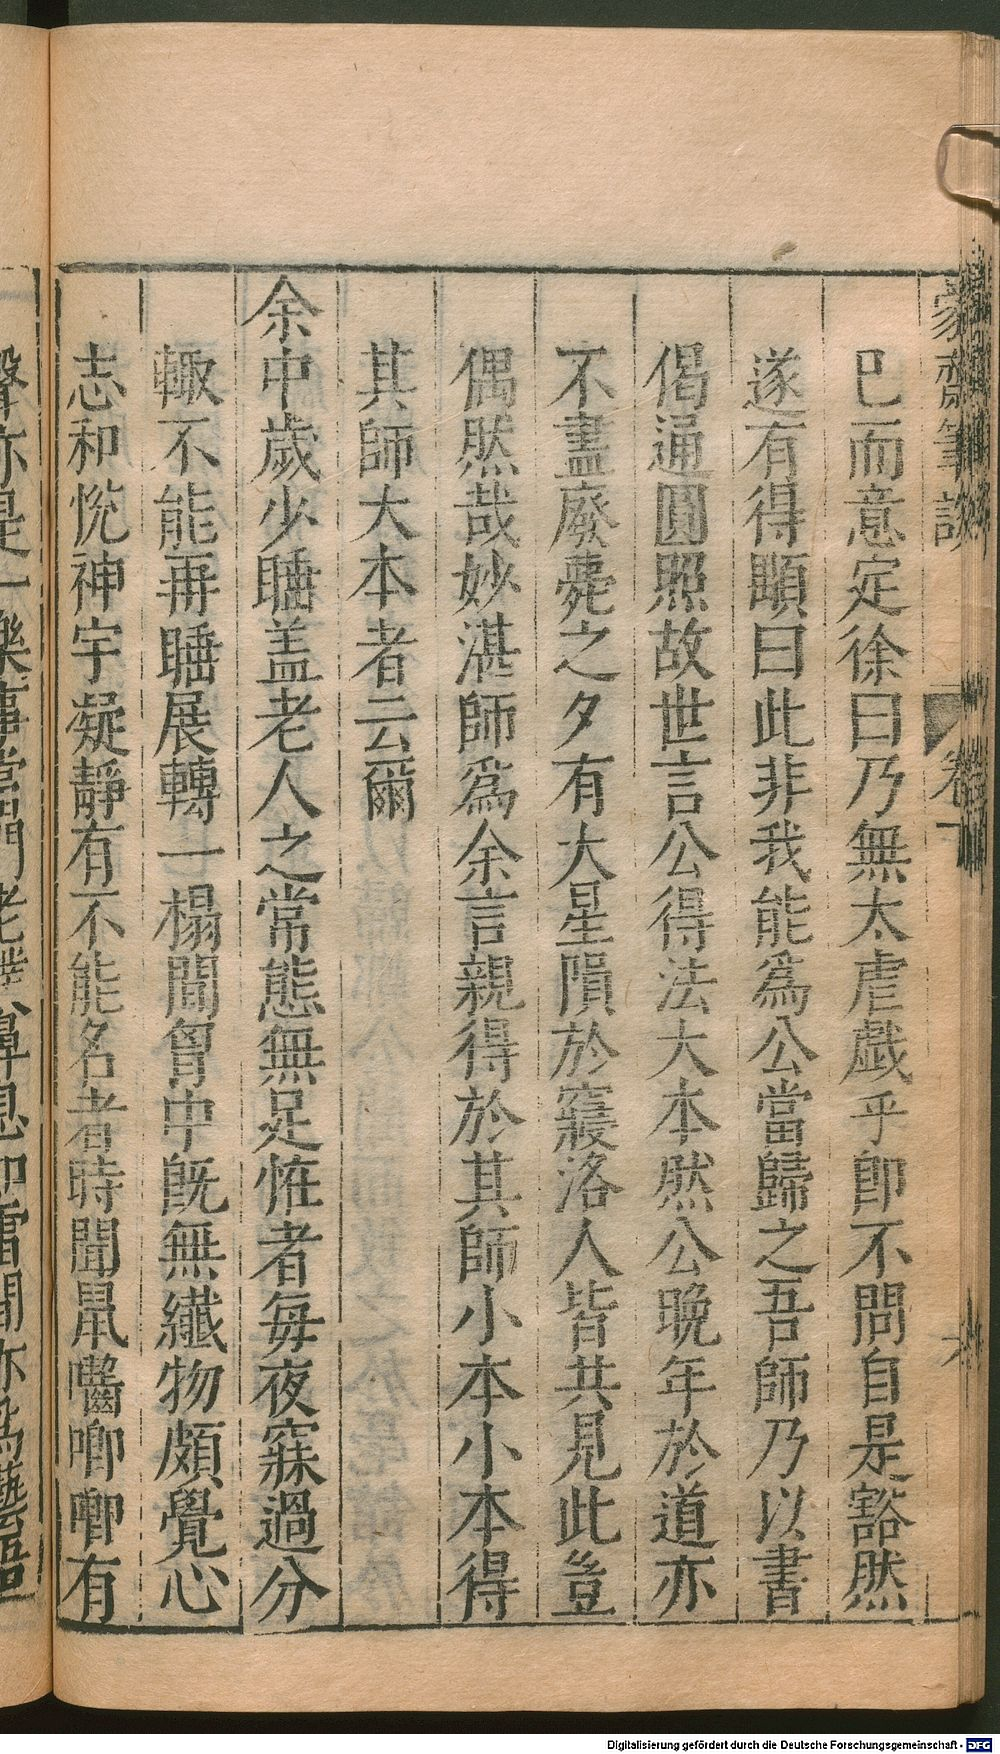 蒙齋筆談
卷一
六
已而意定徐曰乃無太虐戲乎卽不問自是豁然
遂有得顒曰此非我能爲公當歸之吾師乃以書
偈通圓照故世言公得法大本然公晚年於道亦
不盡廢薨之夕有大星隕於寢洛人皆共見此豈
偶然哉妙湛師爲余言親得於其師小本小本得
其師大本者云爾
余中歲少睡盖老人之常態無足恠者每夜寐過分
輙不能再睡展轉一榻間胷中旣無纎物頗覺心
志和恱神宇凝靜有不能名者時聞鼠嚙唧唧有
聲亦是一樂事當門老
鼻息如雷間亦爲
Digitalisierung gefördert durch die Deutsche Forschungsgemeinschaft - DFG